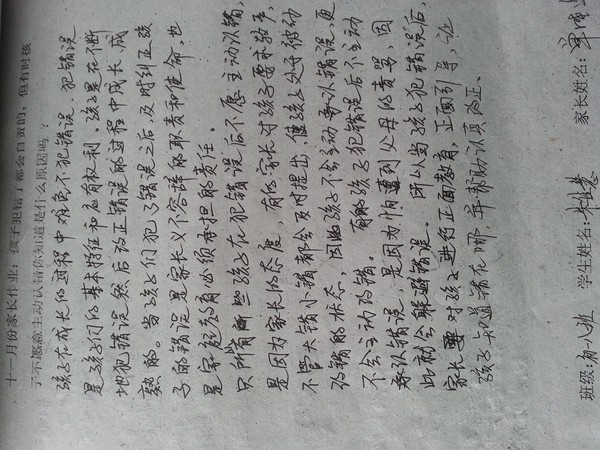 十一月份家长作业：孩子犯错了都会自责的，但有时孩
子不愿意主动认错你知道是什么原因吗？
孩子在成长的过程中难免不犯错误．犯错误
是孩子们的基本特征和应有权利．孩子是在不断
地犯错误然后改正错误的过程中成长成
熟的。当孩子们犯了错误之后，及时纠正孩
子的错误是家长义不容辞的职责和使命，也
是家庭教育必须承担的责任。
只所有所些孩子在犯错误后不愿主动认错，
是因为家长的态度，有的家长对孩子要求较严，
不管大错小错都会及时提出，使孩子处于被动
认错的状态，因此孩子不会主动承认错误，更
不会主动改错。有的孩子犯错误后不主动
承认错误，是因为怕遭到父母的责骂，因
此就会躲避错误。所以当孩子犯错误后，
家长要对孩子进行正面教育，正面引导，让
孩子知道错在哪，并帮助认真改正。
班级：初一八班 学生姓名： 家长姓名：